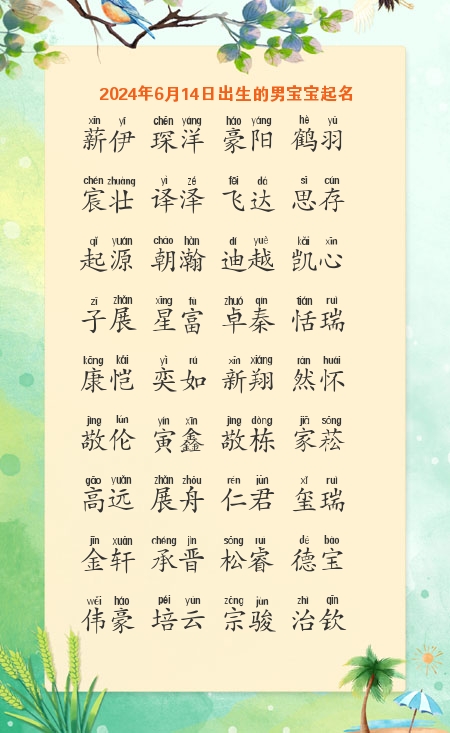 2024年6月14日出生的男宝宝起名
xīn yī chēn yáng háo yáng hè yǔ
薪伊 琛洋 豪阳 鹤羽
chén zhuàng yì zé fēi dá sī cún
宸壮 译泽 飞达 思存
qǐ yuán cháo hàn dí yuè kǎi xīn
起源 朝瀚 迪越 凯心
zǐ zhǎn xīng fù zhuó qín tián ruì
子展 星富 卓秦 恬瑞
kāng kǎi yì rú xīn xiáng rán huái
康恺 奕如 新翔 然怀
jìng lún yín xīn jìng dòng jiā sōng
敬伦 寅鑫 敬栋 家菘
gāo yuǎn zhǎn zhōu rén jūn xǐ ruì
高远 展舟 仁君 玺瑞
jīn xuān chéng jìn sōng ruì dé bǎo
金轩 承晋 松睿 德宝
wěi háo péi yún zōng jùn zhì qīn
伟豪 培云 宗骏 治钦